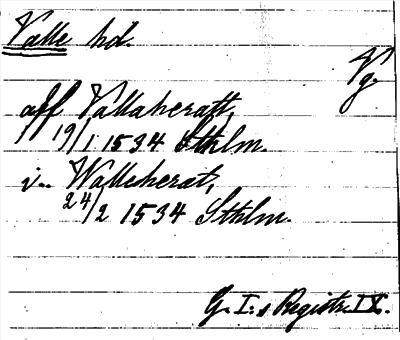 Valle hd.
Vg.
aff Vallaheratt,
19/1 1534 Sthlm.
i.. Walleherat,
24/2 1534 Sthlm.
G. I:s Registr. IX.